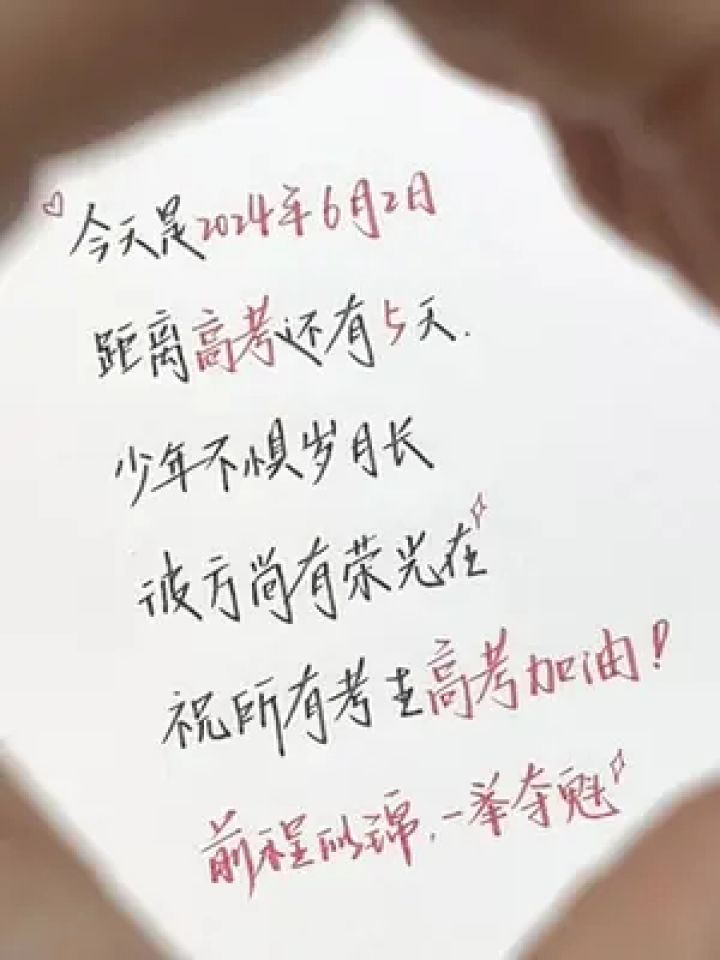 今天是2024年6月2日
距离高考还有5天.
少年不惧岁月长
彼方尚有荣光在
祝所有考生高考加油!
前程似锦,一举夺魁